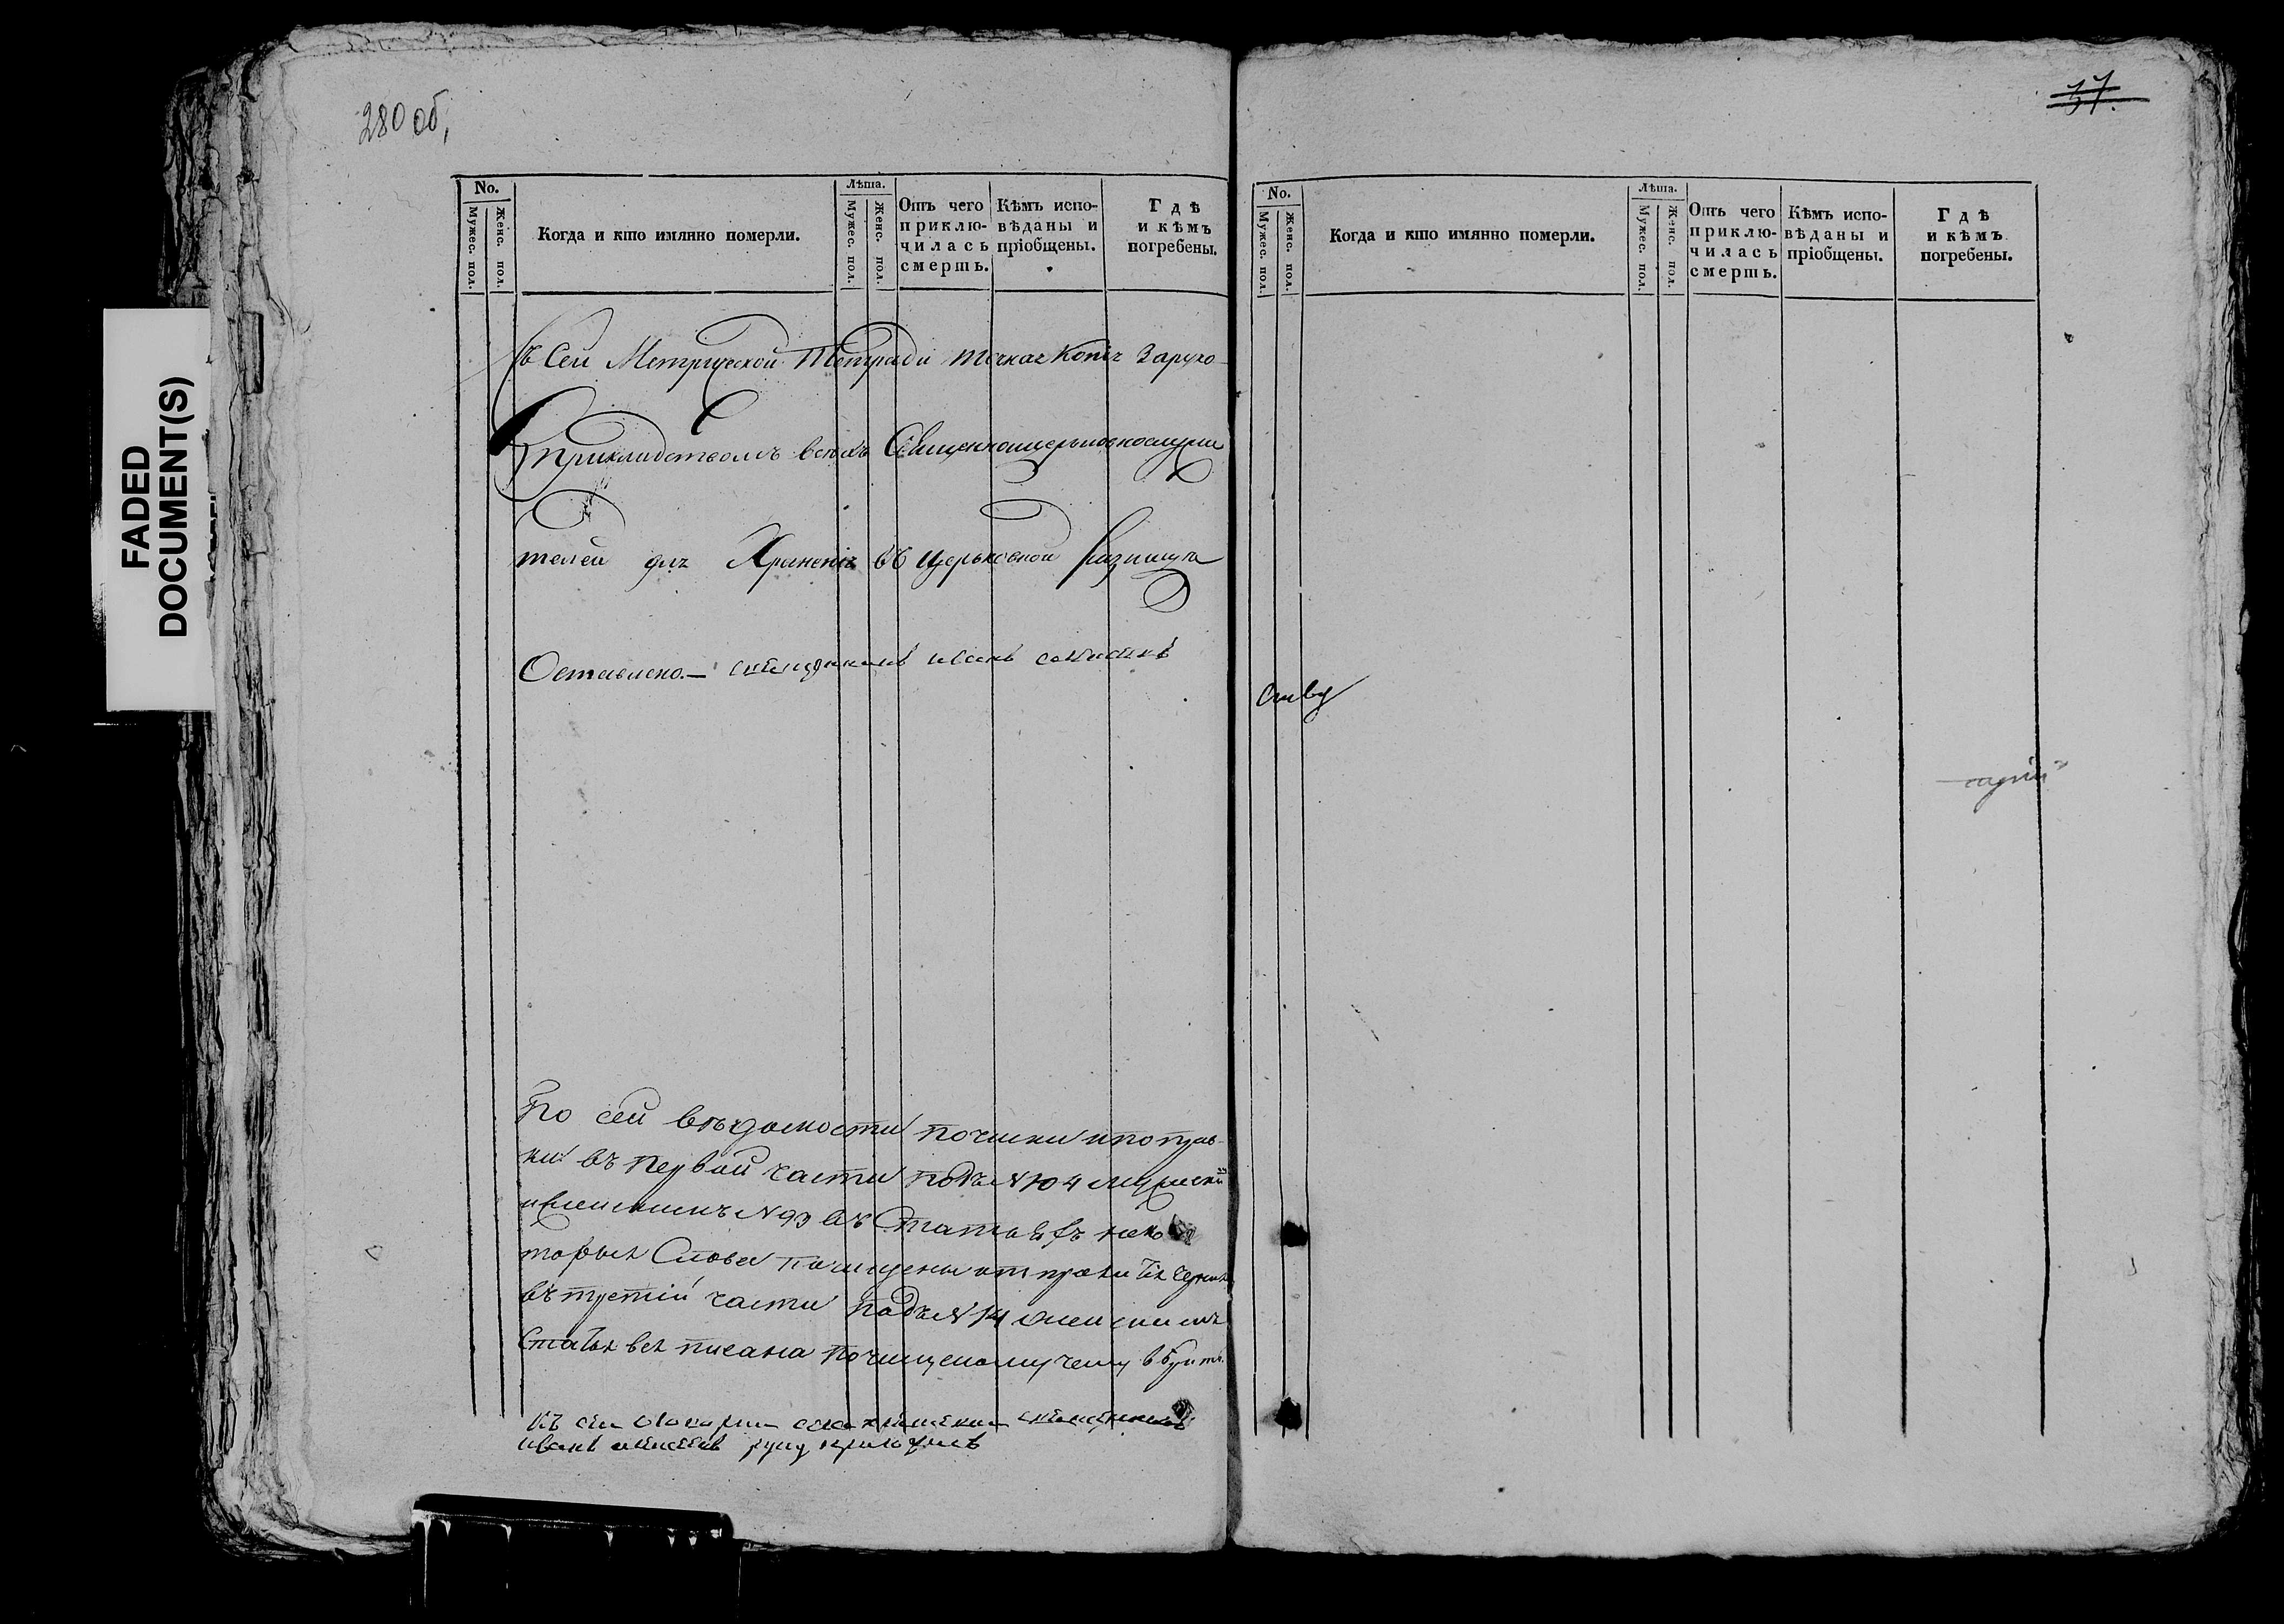 280 об,
37.
FADED
DOCUMENT(S)
No.
Мужес. пол.
Женс. пол.
Когда и кто имянно померли.
Лѣта.
Мужес. пол.
Женс. пол.
Отъ чего
приклю-
чилась
смерть.
Кѣмъ испо-
вѣданы и
пріобщены.
Гдѣ
и кѣмъ
погребены.
Съ Сей Метрической Тетради точная Копія Заруко-
прикладствомъ всехъ Священноцерьковнослужи
телей для Храненія въ Церьковной Ризнице
Оставлено.— священникъ иванъ
По сей въдомости почиски и поправ-
ки въ Первой части подъ N 104 мужеским
и женскимъ N 93 въ Статьяхъ неко
торыхъ Слова почищены
въ третій части подъ N 14 женскимъ
Статья вся писана почищеному чему
къ сей священникъ
иванъ руку приложилъ
No.
Мужес. пол.
Женс. пол.
Когда и кто имянно померли.
Лѣта.
Мужес. пол.
Женс. пол.
Отъ чего
приклю-
чилась
смерть.
Кѣмъ испо-
вѣданы и
пріобщены.
Гдѣ
и кѣмъ
погребены.